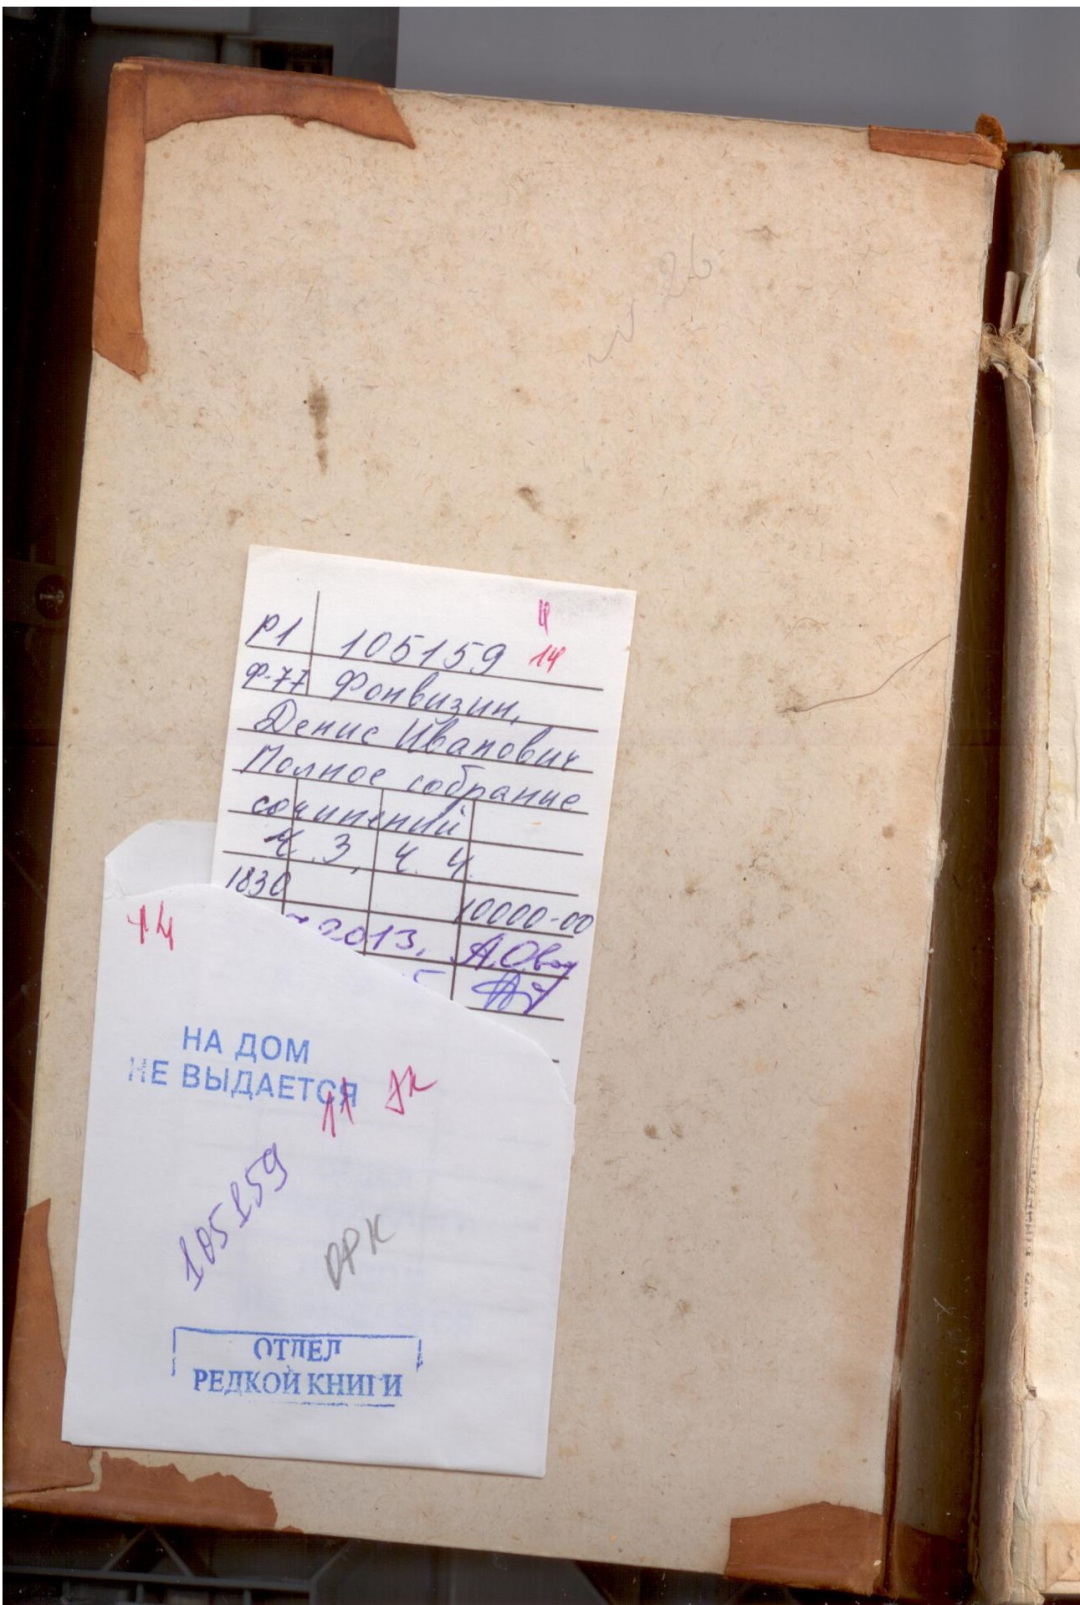 № 26
Р1 105159 14
Ф-77 Фонвизин,
Денис Иванович
Полное собрание
сочинений
Ч. 3, Ч. 4.
1830 10000-00
2013,
14
НА ДОМ
НЕ ВЫДАЕТСЯ
11
105159
ОРК
ОТДЕЛ
РЕДКОЙ КНИГИ